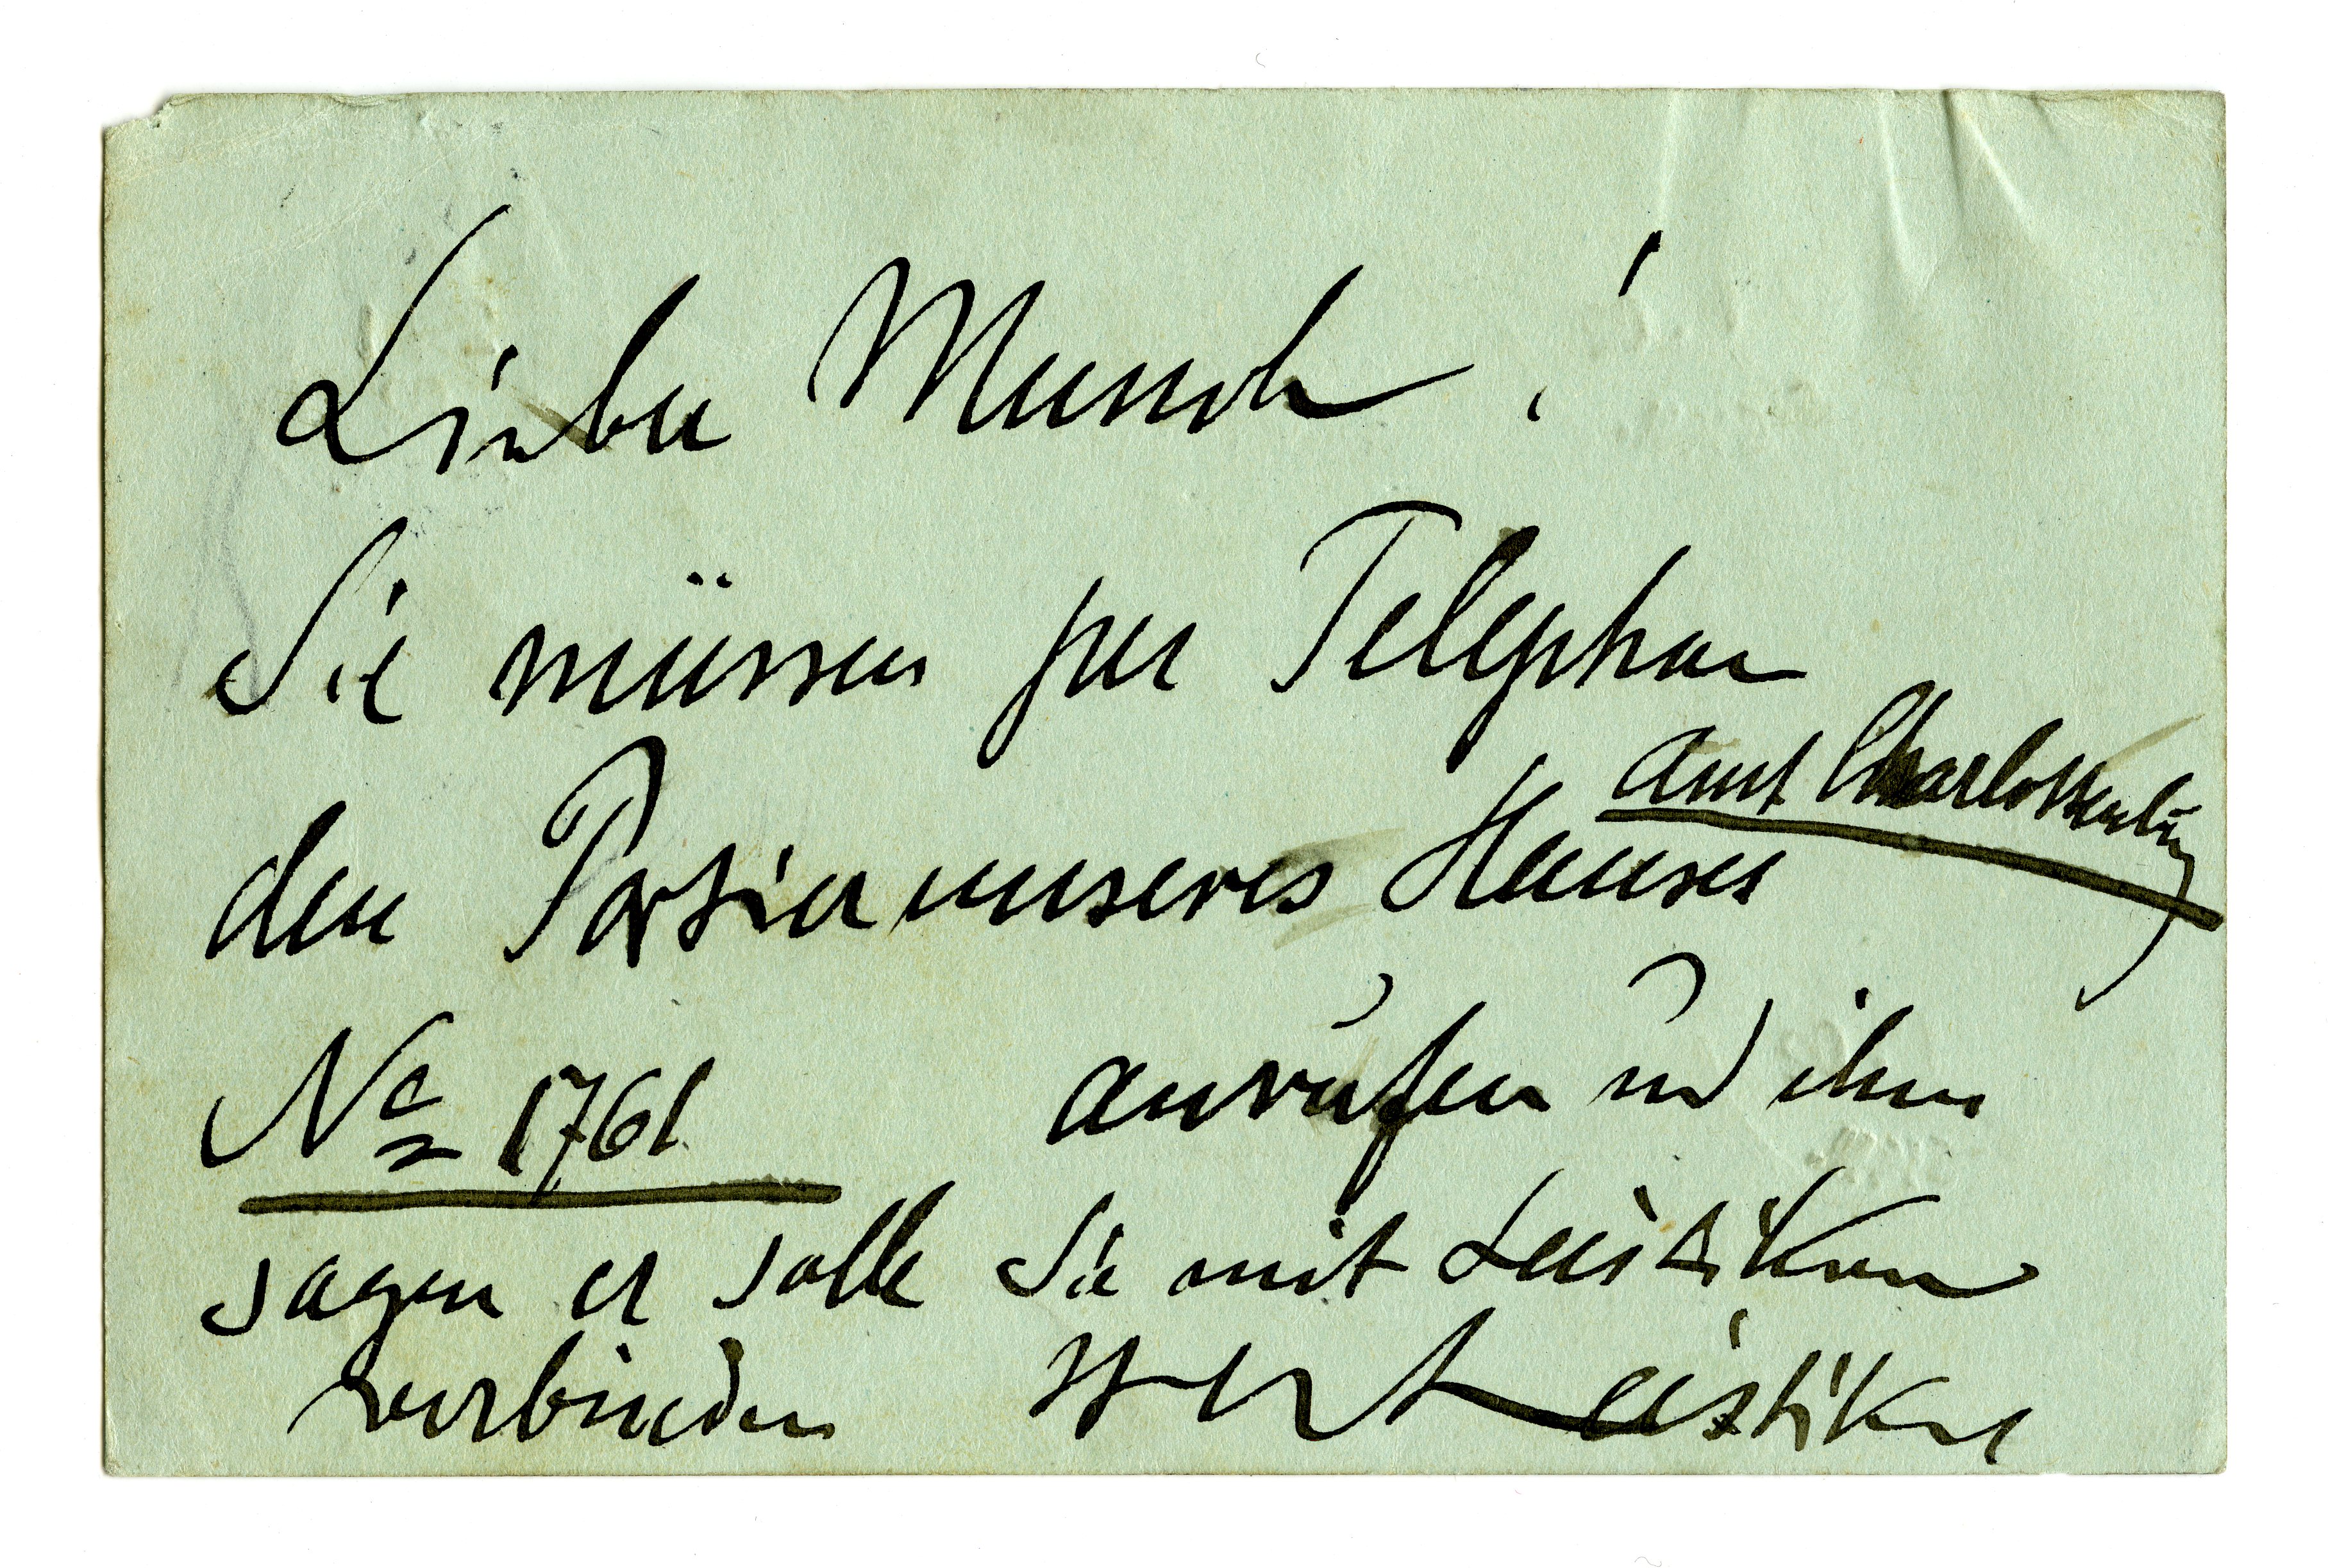 Lieber Munch!
Sie müssen per Telephon
den Portier unseres Hauses
Amt Charlottenburg
No 1761 anrufen und ihm
sagen er solle Sie mit Leistikow
verbinden Ihr Leistikow